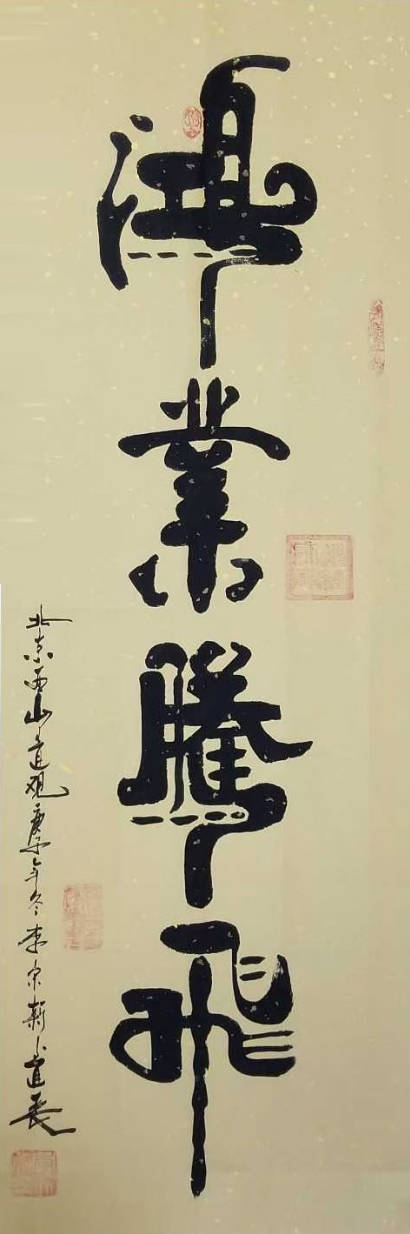 鴻業騰飛
北京西山道观庚子年冬李宗新道長